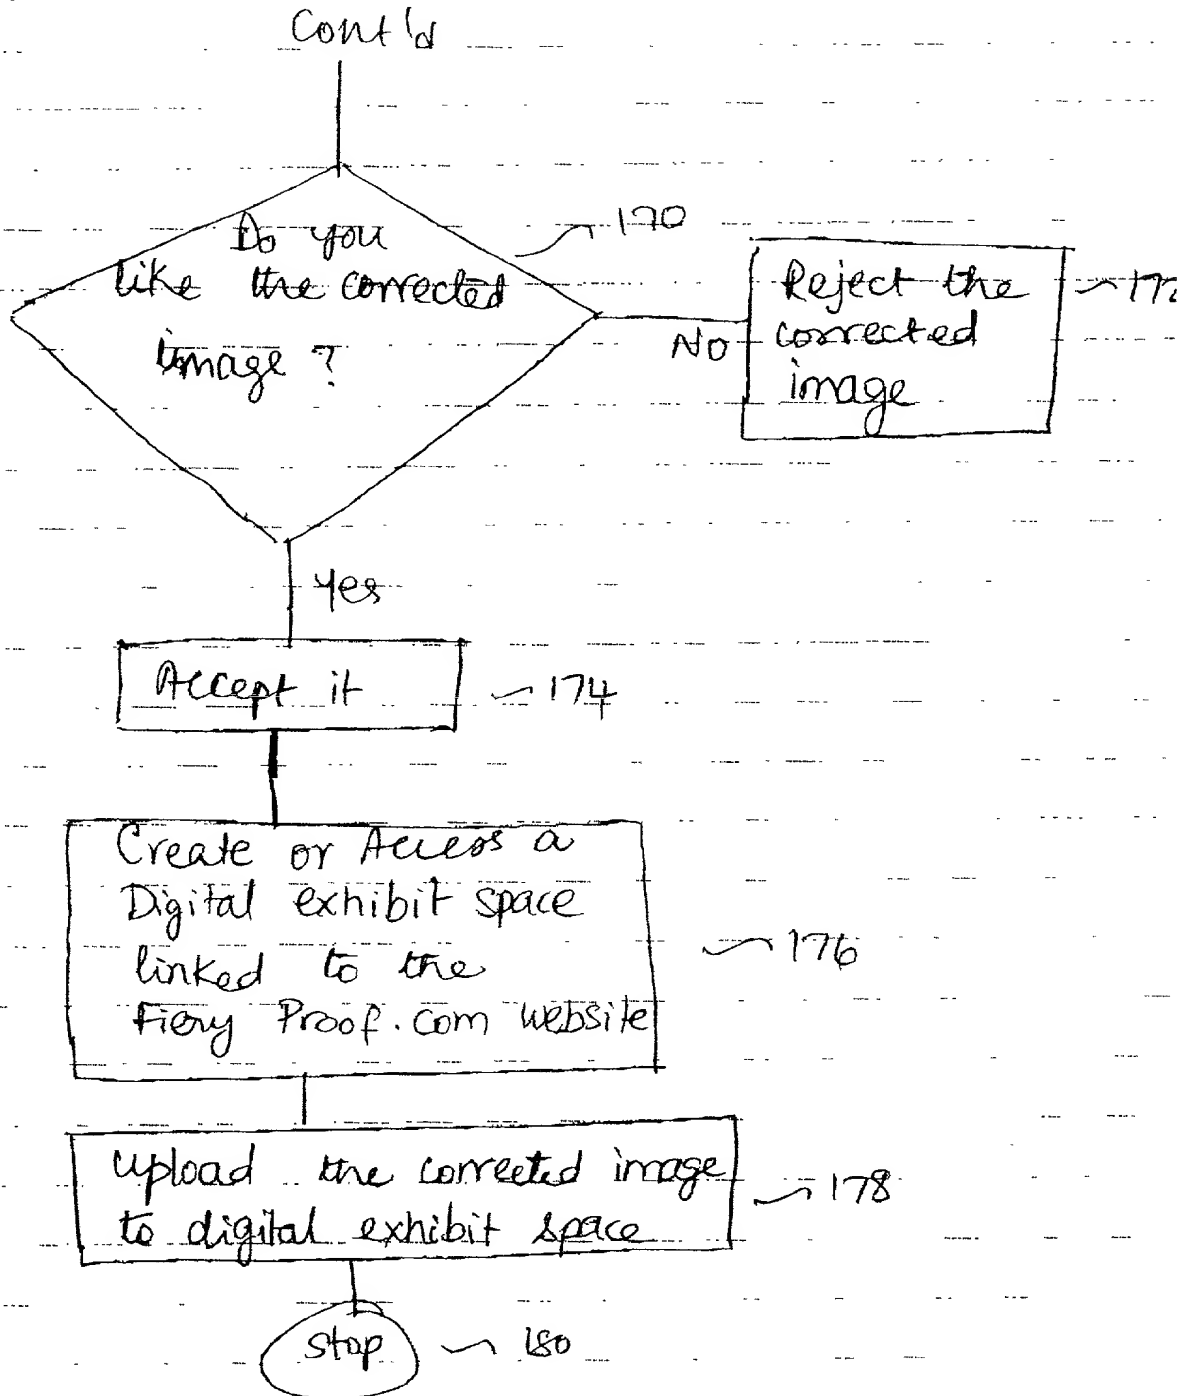 Cont'd
Do you
like the corrected
image ?
170
NO
Reject the
corrected
image
172
Yes
Accept it
174
Create or Access a
Digital exhibit space
linked to the
Fiery Proof.com website
176
upload the corrected image
to digital exhibit space
178
Stop
180